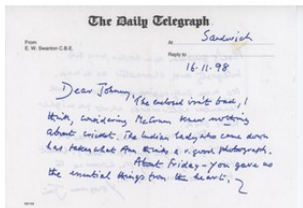 The Daily Telegraph
From
E. W. Swanton C.B.E.
At Sandwich
Reply to
16.11.98
Dear Johnny,
The enclosed isn't bad, I
think, considering knew nothing
about cricket. The Indian lady who came down
has taken what Ann thinks a v. good photograph.
About Friday – you gave us
the essential things from the heart.